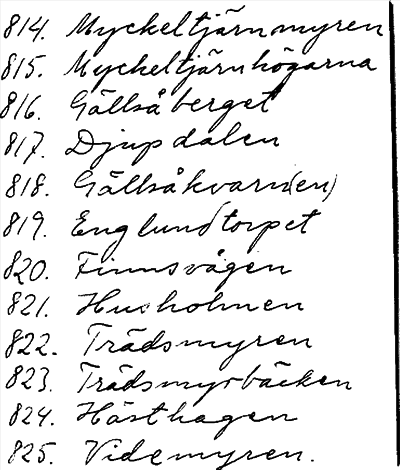 814. Myckeltjärnmyren
815. Myckeltjärnhögarna
816. Gällsåberget
817. Djupdalen
818. Gällsåkvarn(en)
819. Englundtorpet
820. Finnsvägen
821. Husholmen
822. Trädsmyren
823. Trädsmyrbäcken
824. Hästhagen
825. Videmyren.